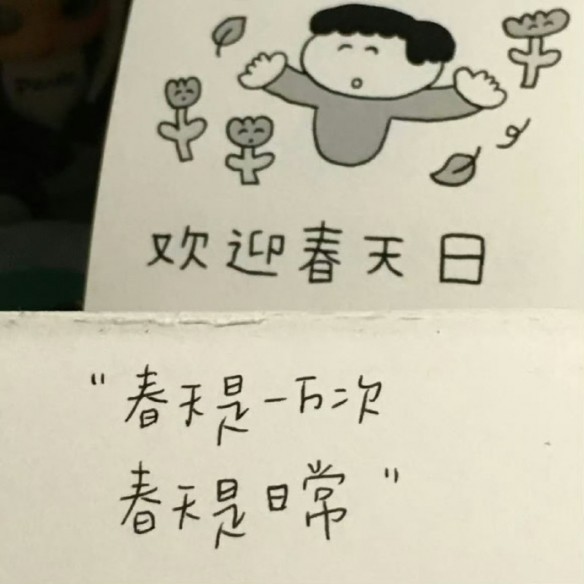 欢迎春天日
"春天是一万次
春天是日常"